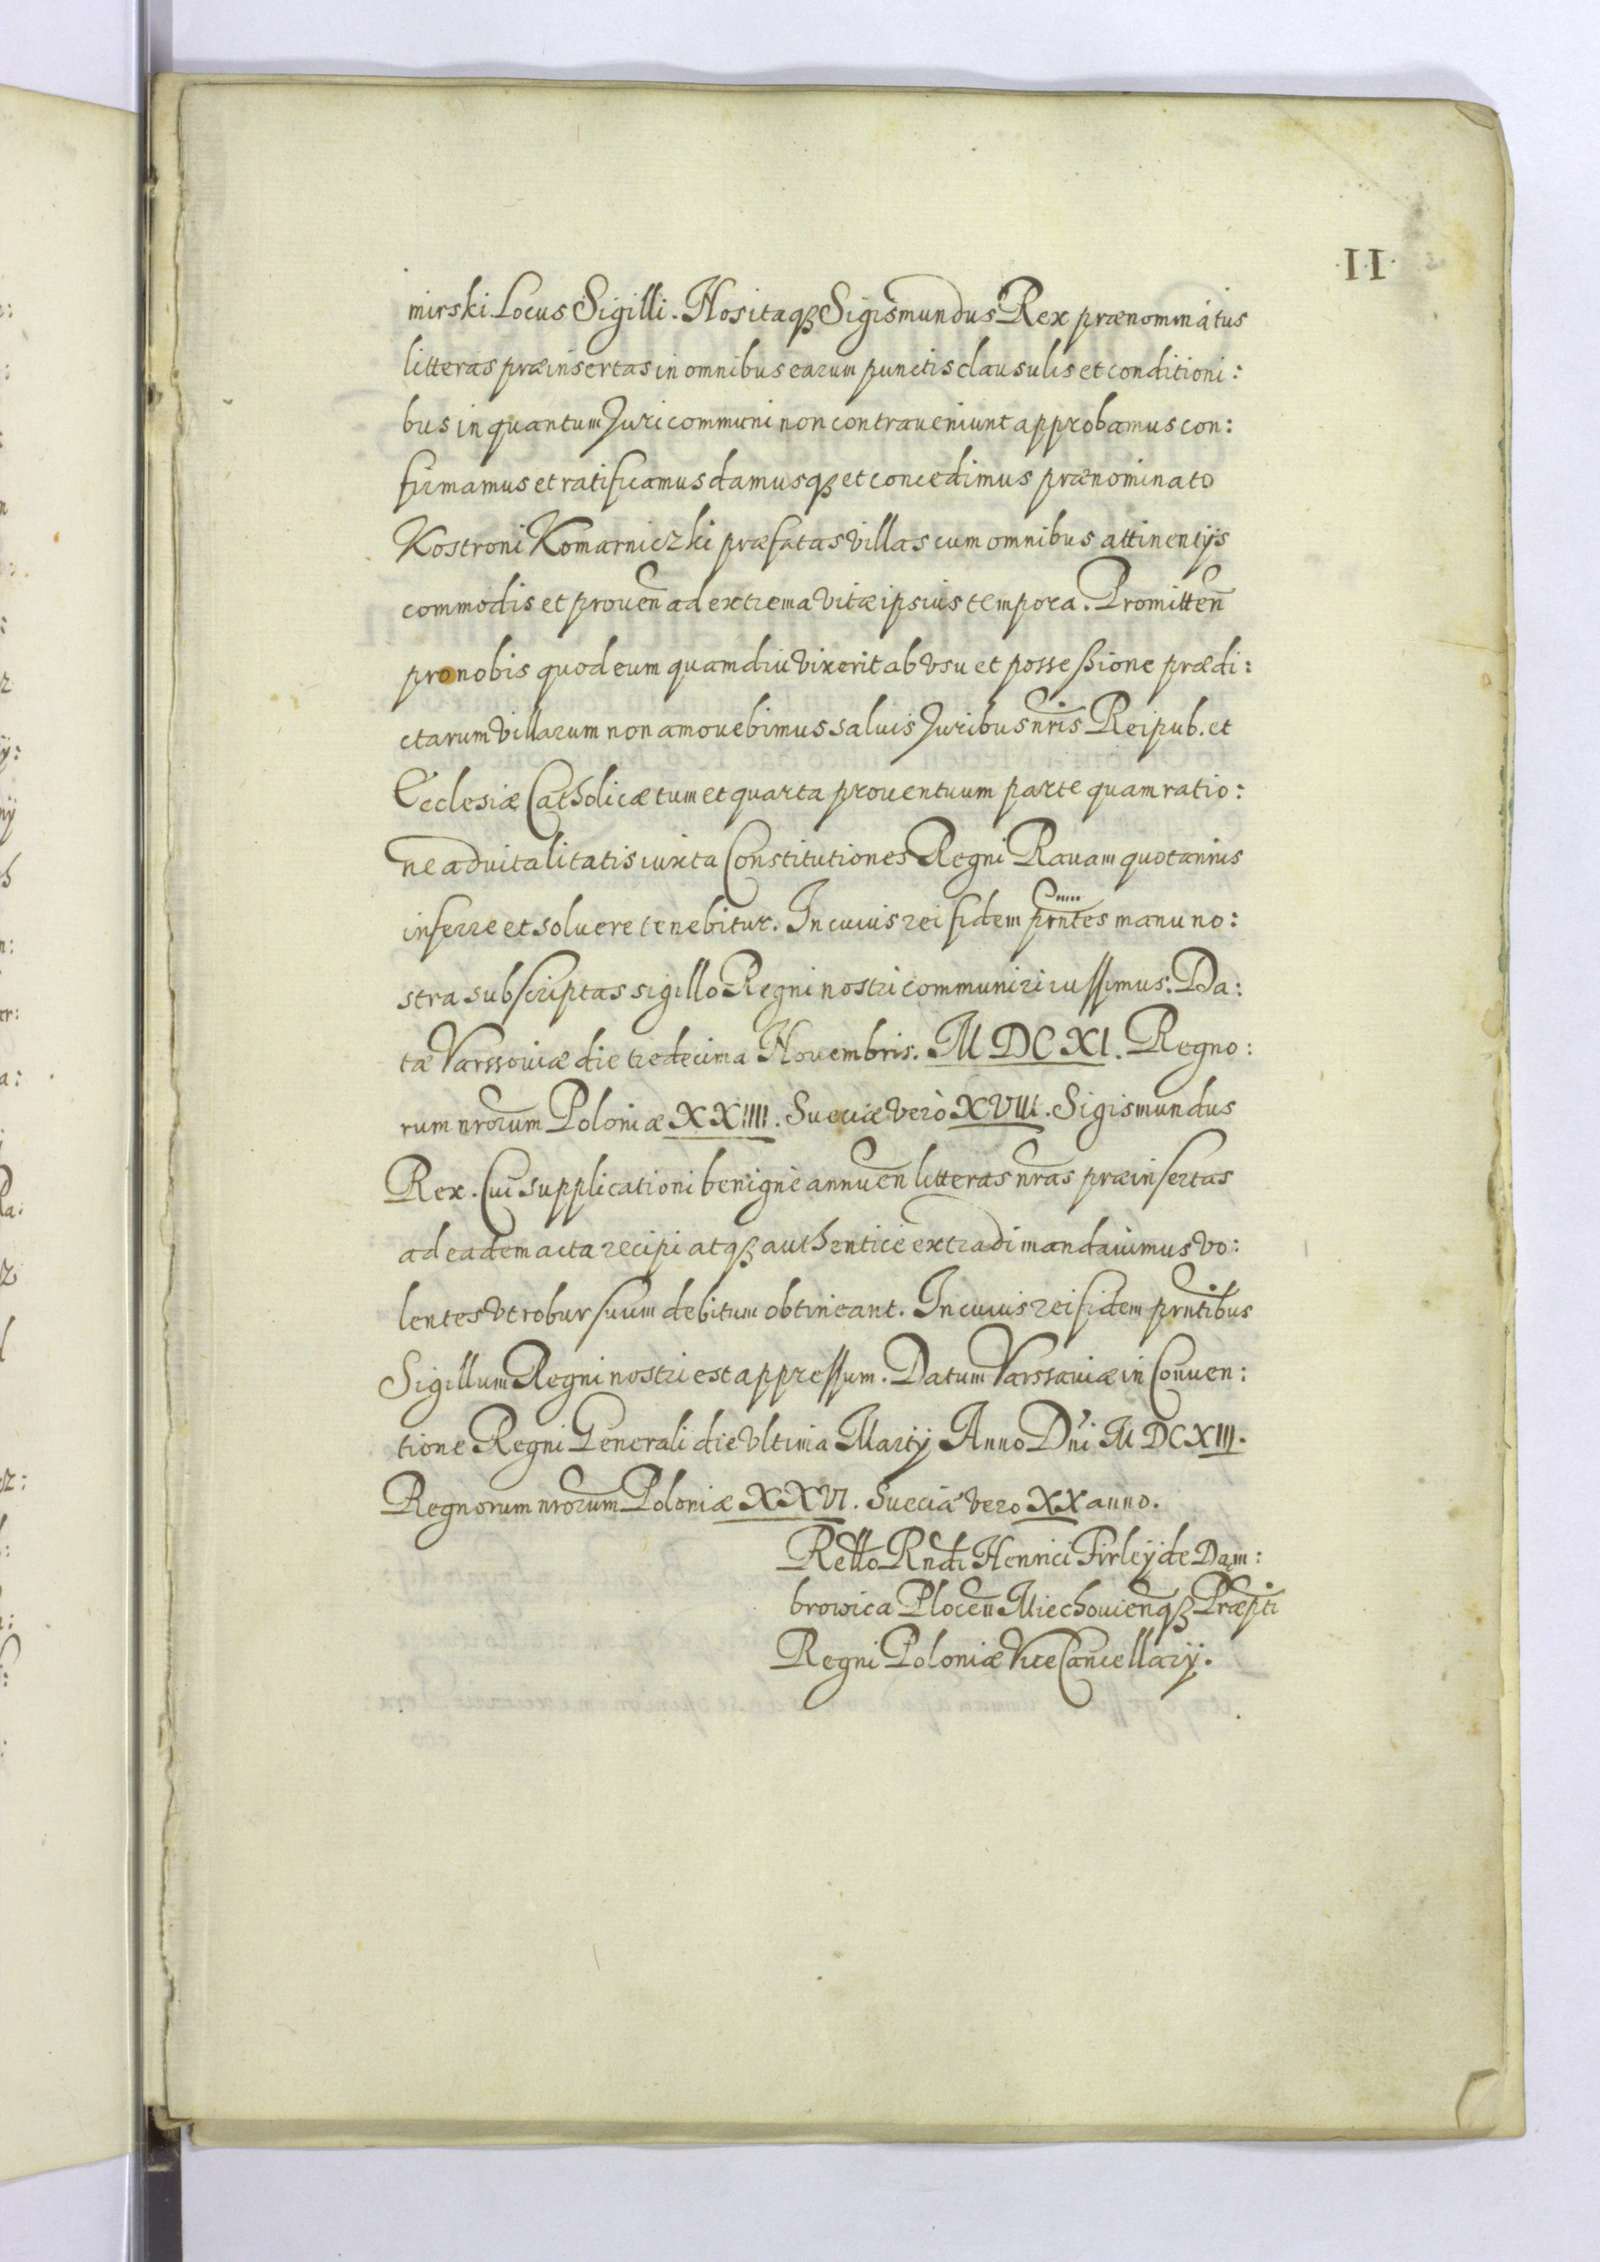 II
mirski Locus Sigilli. Nos itaq3 Sigismundus Rex prænominatus
litteras præinsertas in omnibus earum punctis clausulis et conditioni:
bus in quantum Juri communi non contraueniunt approbamus con:
firmamus et ratificamus damusq3 et concedimus prænominato
Kostroni Komarniczki præfatas villas cum omnibus attinentijs
commodis et prouen̄ ad extrema vitæ ipsius tempora. Promitten̄
pro nobis quod eum quamdiu vixerit ab vsu et possessione prædi:
ctarum villarum non amouebimus saluis Juribus nr̄is Reipub. et
Ecclesiæ Catholicæ tum et quarta prouentuum parte quam ratio:
ne aduitalitatis iuxta Constitutiones Regni Rauam quotannis
inferre et soluere tenebitur. In cuius rei fidem prn̄tes manu no:
stra subscriptas sigillo Regni nostri communiri iussimus. Da:
tæ Varssouiæ die tredecima Nouembris. M DC XI. Regno:
rum nrōrum Poloniæ XXIIII. Sueciæ verò XVIII. Sigismundus
Rex. Cui supplicationi benignè annuen̄ litteras nr̄as præinsertas
ad eadem acta recipi atq3 authenticè extradi mandauimus vo:
lentes vt robur suum debitum obtineant. In cuius rei fidem prn̄tibus
Sigillum Regni nostri est appressum. Datum Varssauiæ in Conuen:
tione Regni Generali die vltima Martij Anno Dn̄i M DC XIII.
Regnorum nrōrum Poloniæ XXVI. Sueciæ vero XX anno.
Rel̄lo Rn̄di Henrici Firleÿ de Dam:
browica Plocen̄ Miechouien̄q3 Præpti
Regni Poloniæ ViceCancellarij.